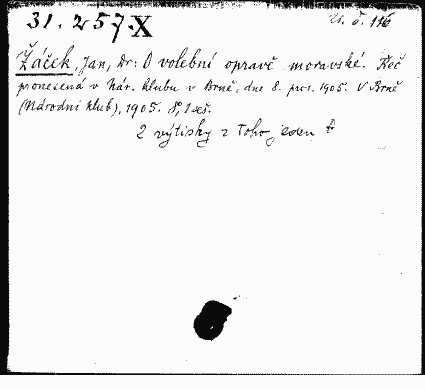 31.257.X
21. č. 116
Žáček, Jan, Dr: O volební opravě moravské. Řeč
pronesená v Nár. klubu v Brně, dne 8. pros. 1905. V Brně
(Národní klub), 1905. 8°, 1 seš.
2 výtisky z toho jeden